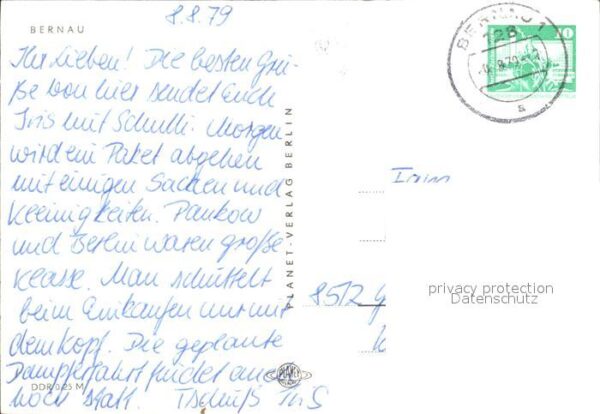 8.8.79
BERNAU
Ihr Lieben! Die besten Grü-
ße von hier sendet Euch
Iris mit Schulli. Morgen
wird ein Paket abgehen
mit einigen Sachen und
Kleinigkeiten. Pankow
und Berlin waren große
Klasse. Man schüttelt
beim Einkaufen nur mit
dem Kopf. Die geplante
Dampferfahrt findet auch
noch statt. Tschüß
DDR 0,25 M
PLANET-VERLAG BERLIN
PLANET
BERNAU 1
128
a
10
8512
privacy protection
Datenschutz